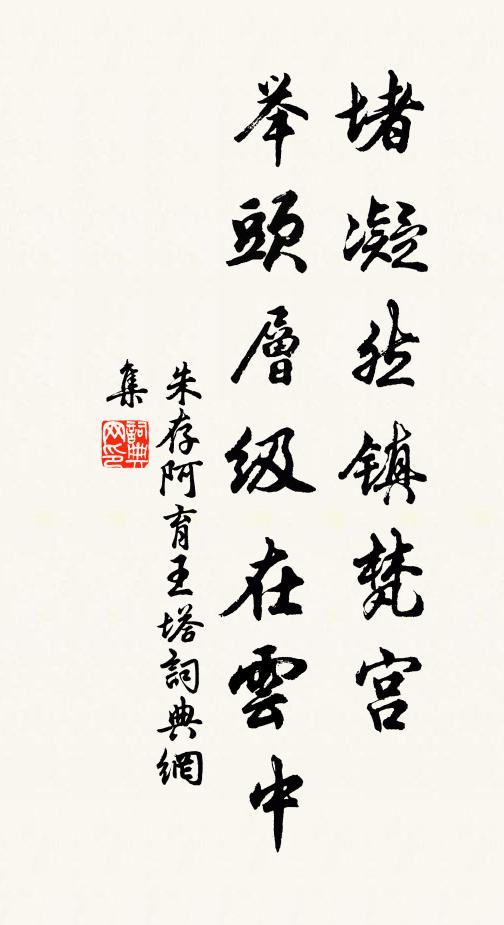 堵凝然镇梵宫
举頭層级在雲中
朱存阿育王塔詞典網
集
詞典
网印